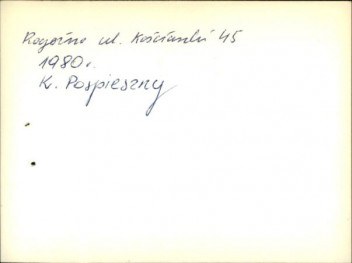 Rogoźno ul. Kościuszki 45
1980 r.
K. Pospieszny